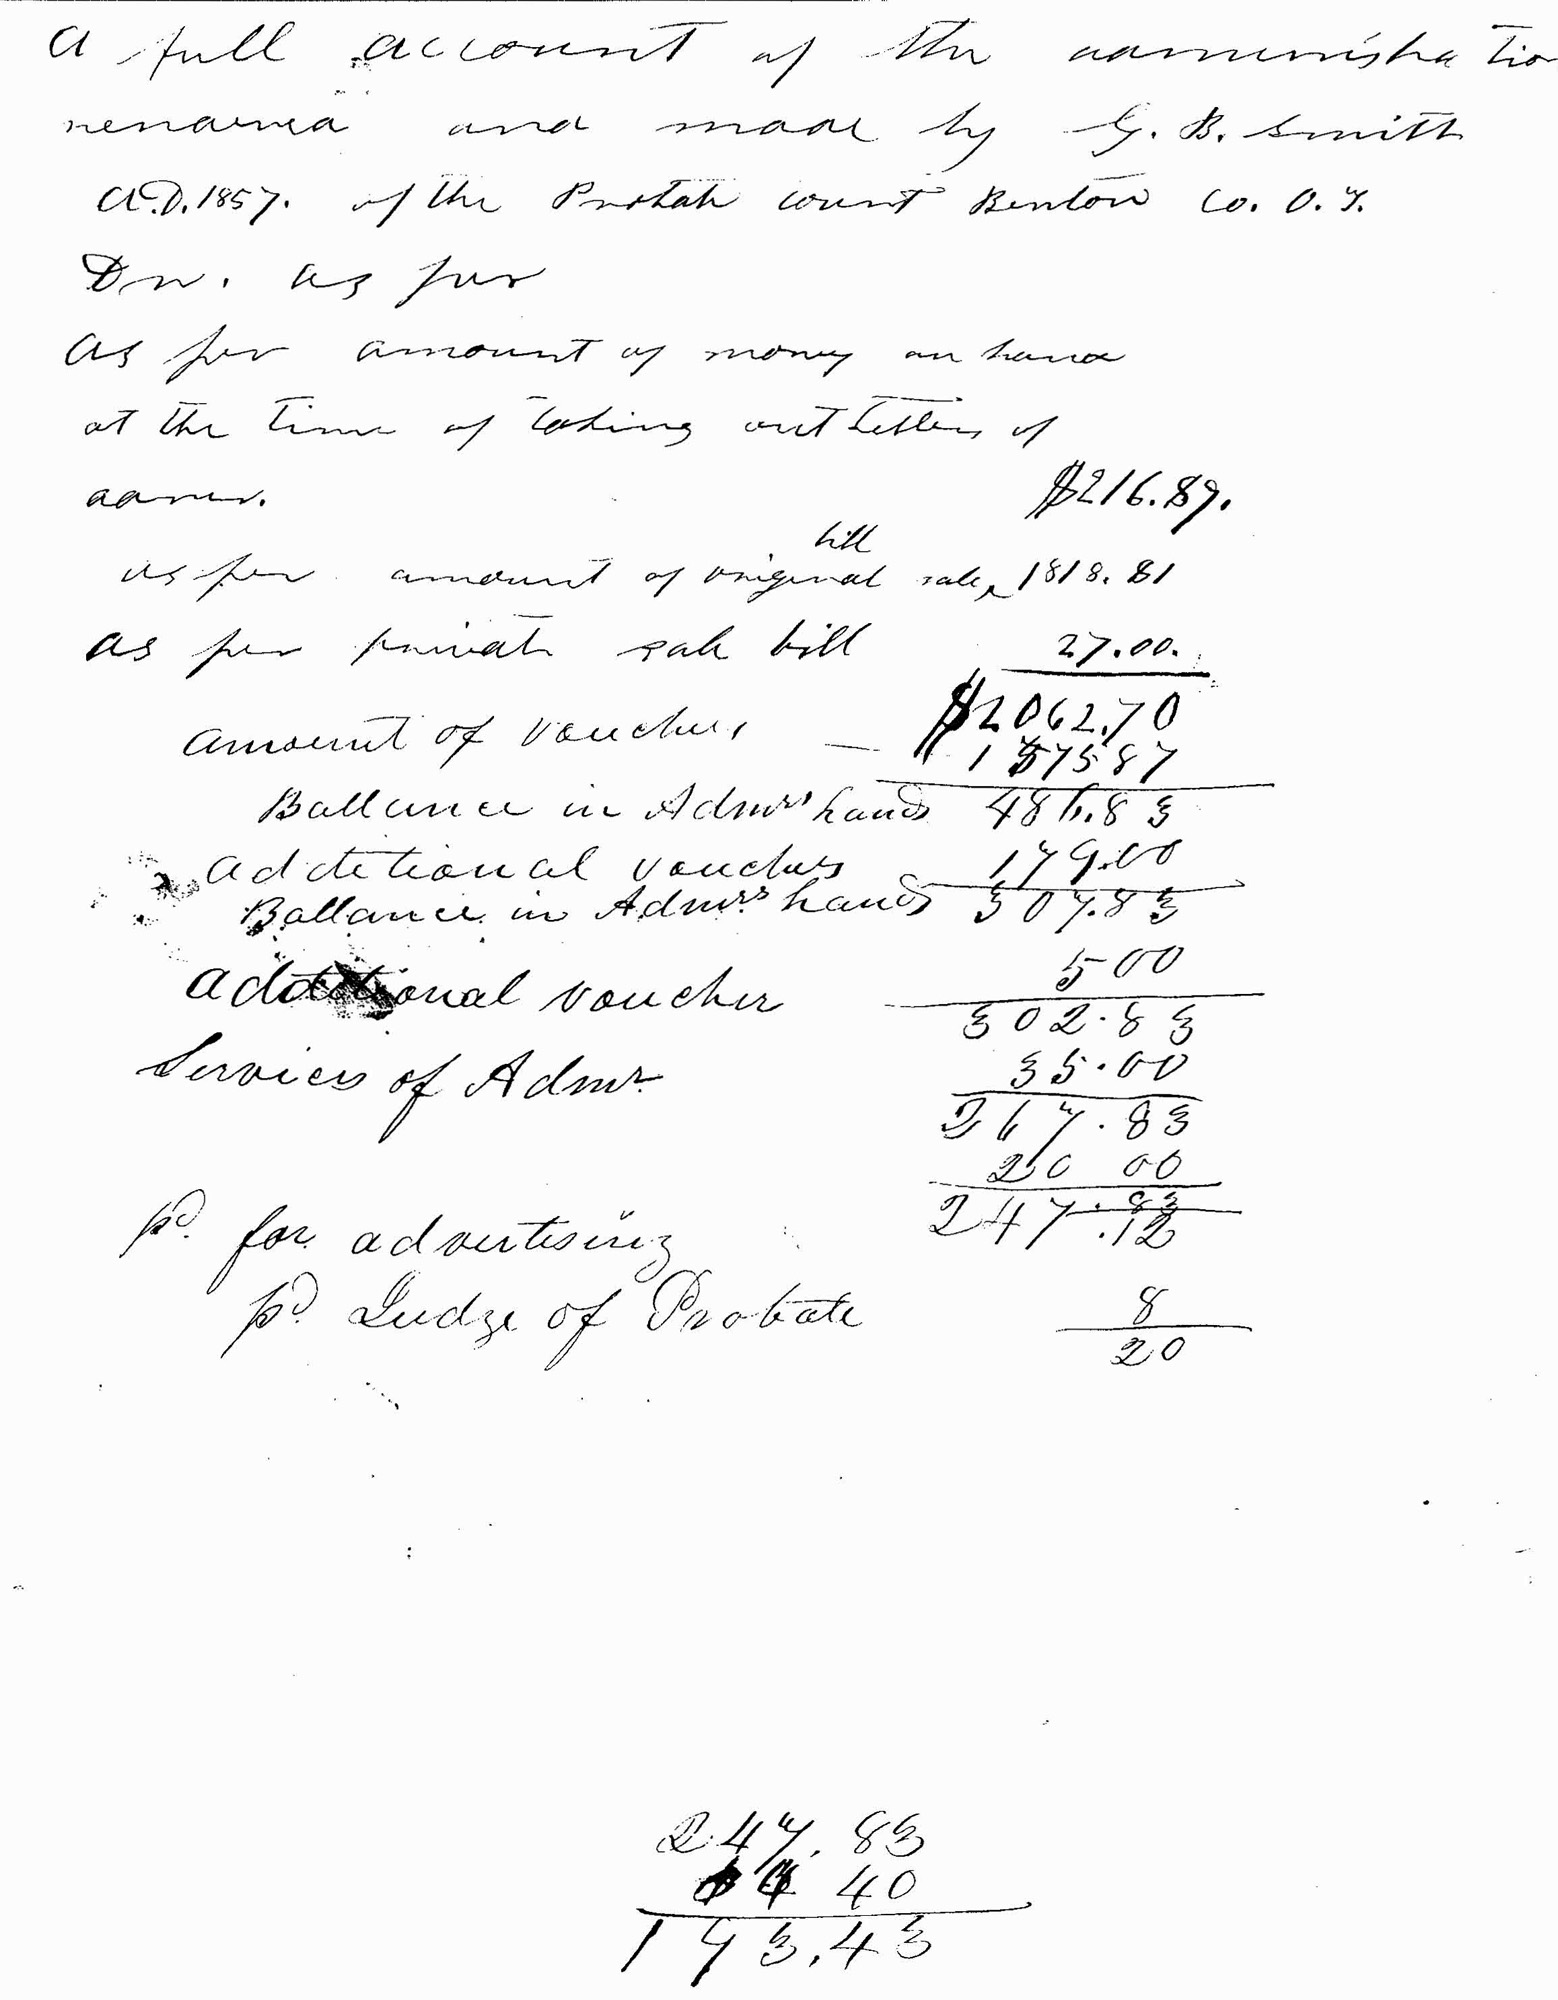 A full account of the administratio
rendered and made by G. B. Smith
A.D. 1857. of the Probate court Benton Co. O. T.
Dr. as per
As per amount of money on hand
at the time of taking out Letters of
admr. $216.89.
bill
as per amount of original sale, 1818.81
As per private sale bill 27.00.
$2062.70
Amount of vouchers — 1575 87
Ballance in Admrs hands 486.83
Additional vouchers 179.00
Ballance in Admrs hands 307.83
Additional voucher 5 00
302.83
Services of Admr 35.00
267.83
20 00
247.83
pd. for advertising .12
pd. Judge of Probate 8
20
247.83
40
193.43